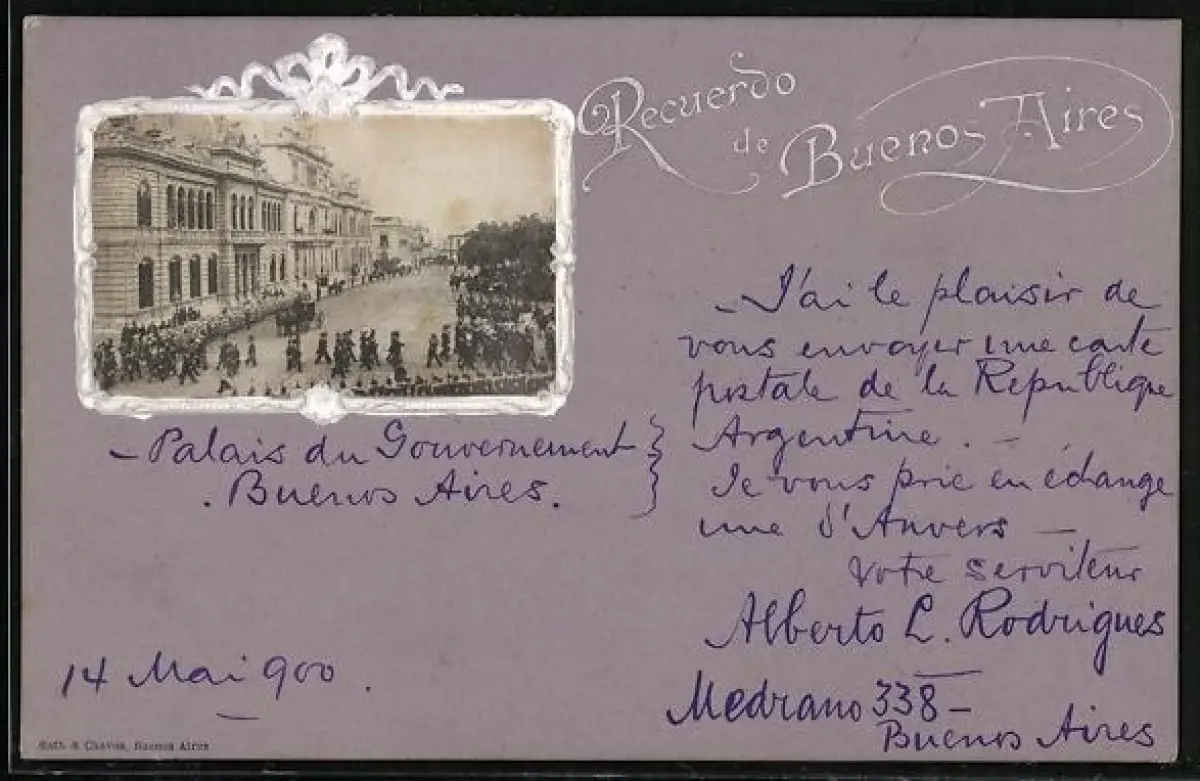 Recuerdo
de
Buenos Aires
– J'ai le plaisir de
vous envoyer une carte
postale de la Republique
Argentine. –
Je vous prie en échange
une d'Anvers –
Votre serviteur
Alberto L. Rodrigues
Medrano 338 –
Buenos Aires
– Palais du Gouvernement
. Buenos Aires.
14 Mai 900.
& Chaves, Buenos Aires